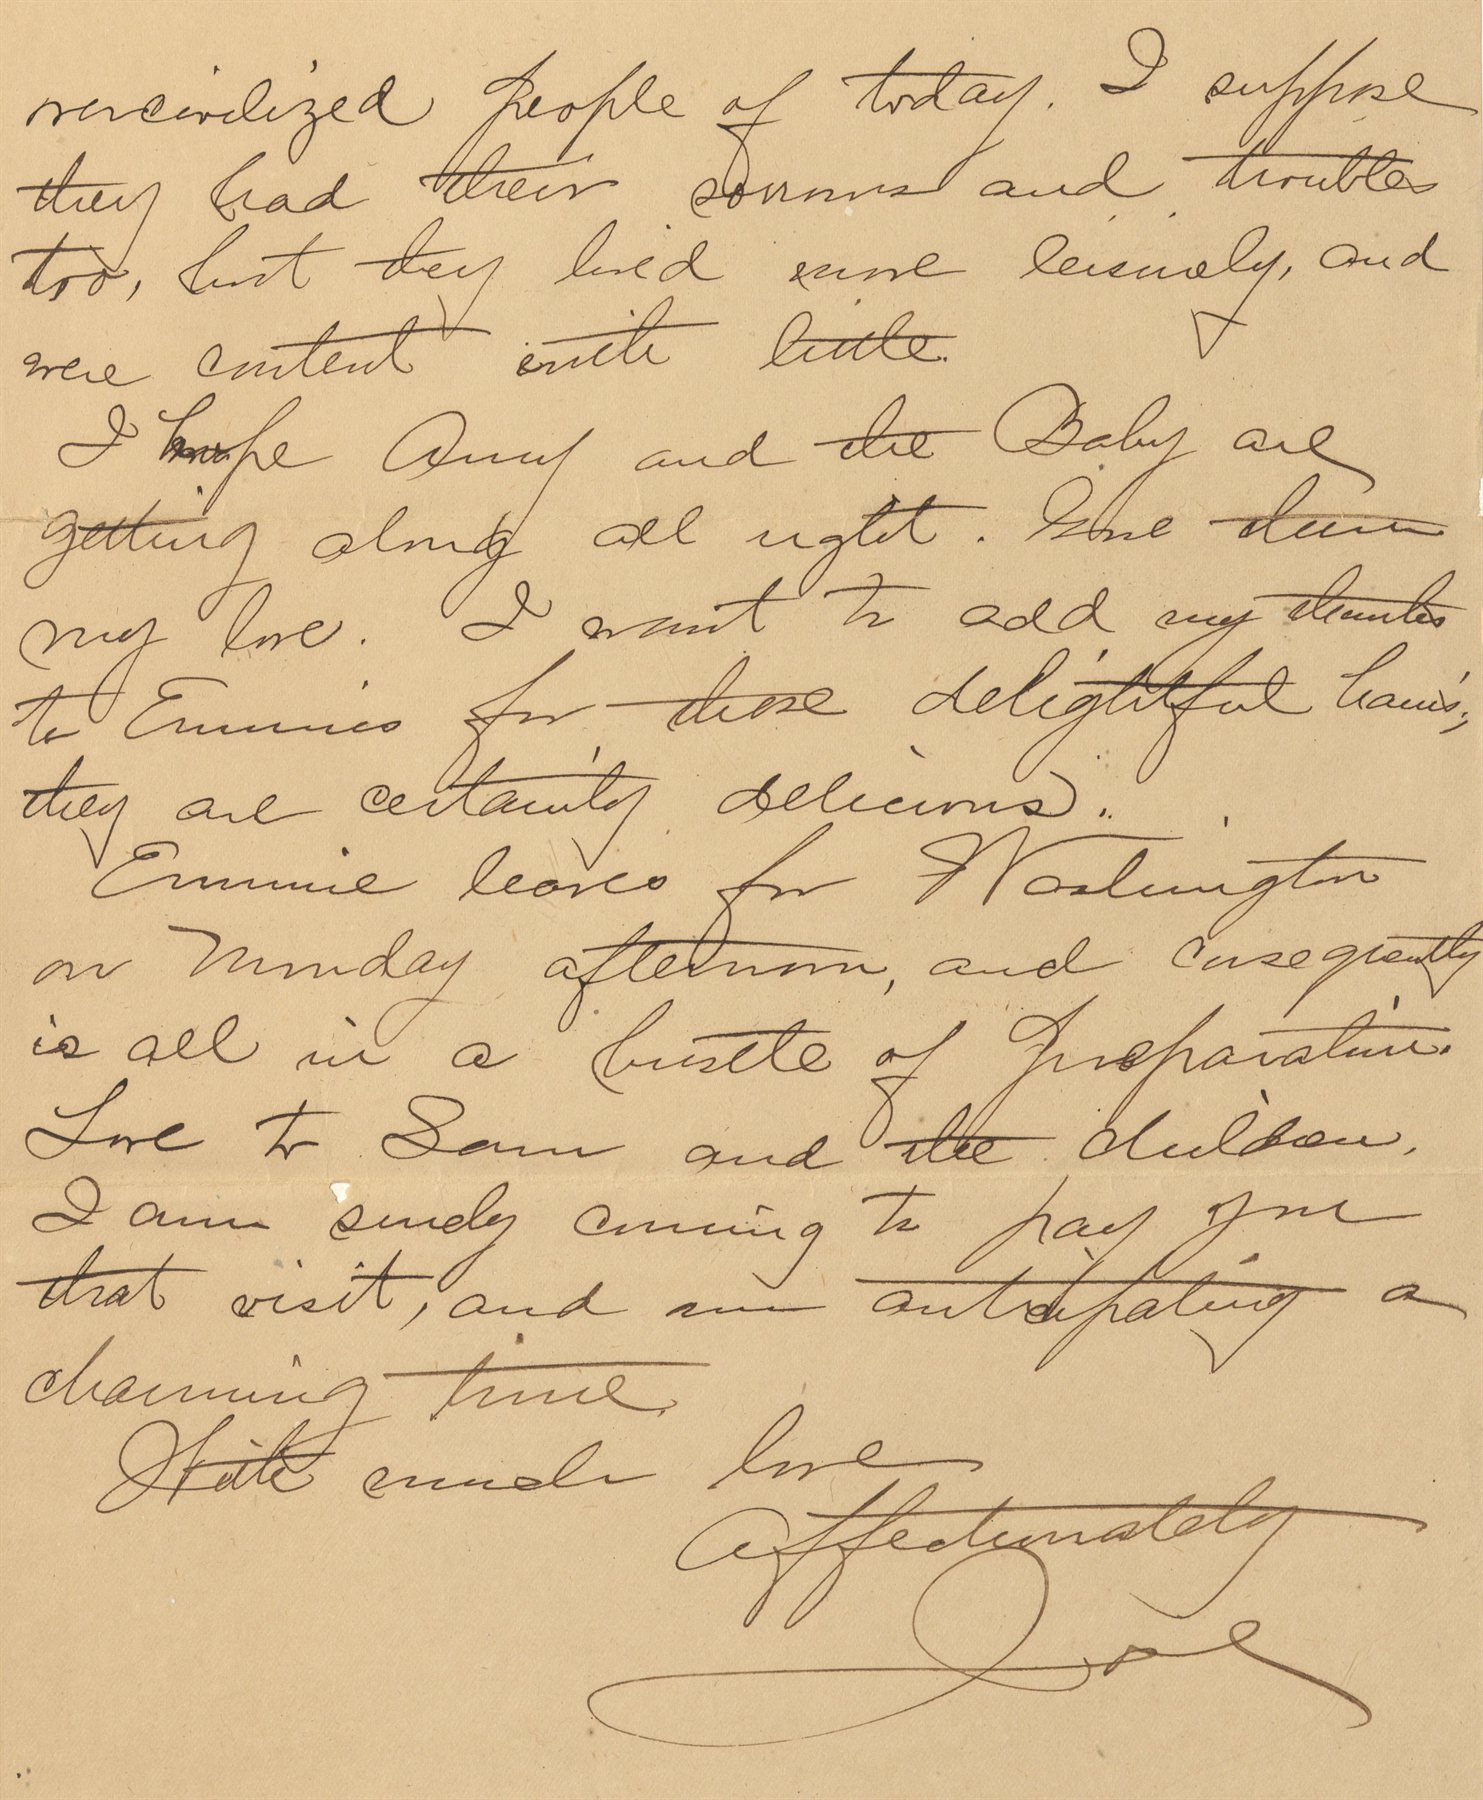 overcivilized people of today. I suppose
they had their sorrows and troubles
too, but they lived more leisurely, and
were content with little.
I hope Amy and the Baby are
getting along all right. Give them
my love. I want to add my thanks
to Emmies for those delightful hams,
they are certainly delicious.
Emmie leaves for Washington
on Monday afternoon, and consequently
is all in a bustle of preparation.
Love to Sam and the children.
I am surely coming to pay you
that visit, and am anticipating a
charming time.
With much love
Affectionately
Joe